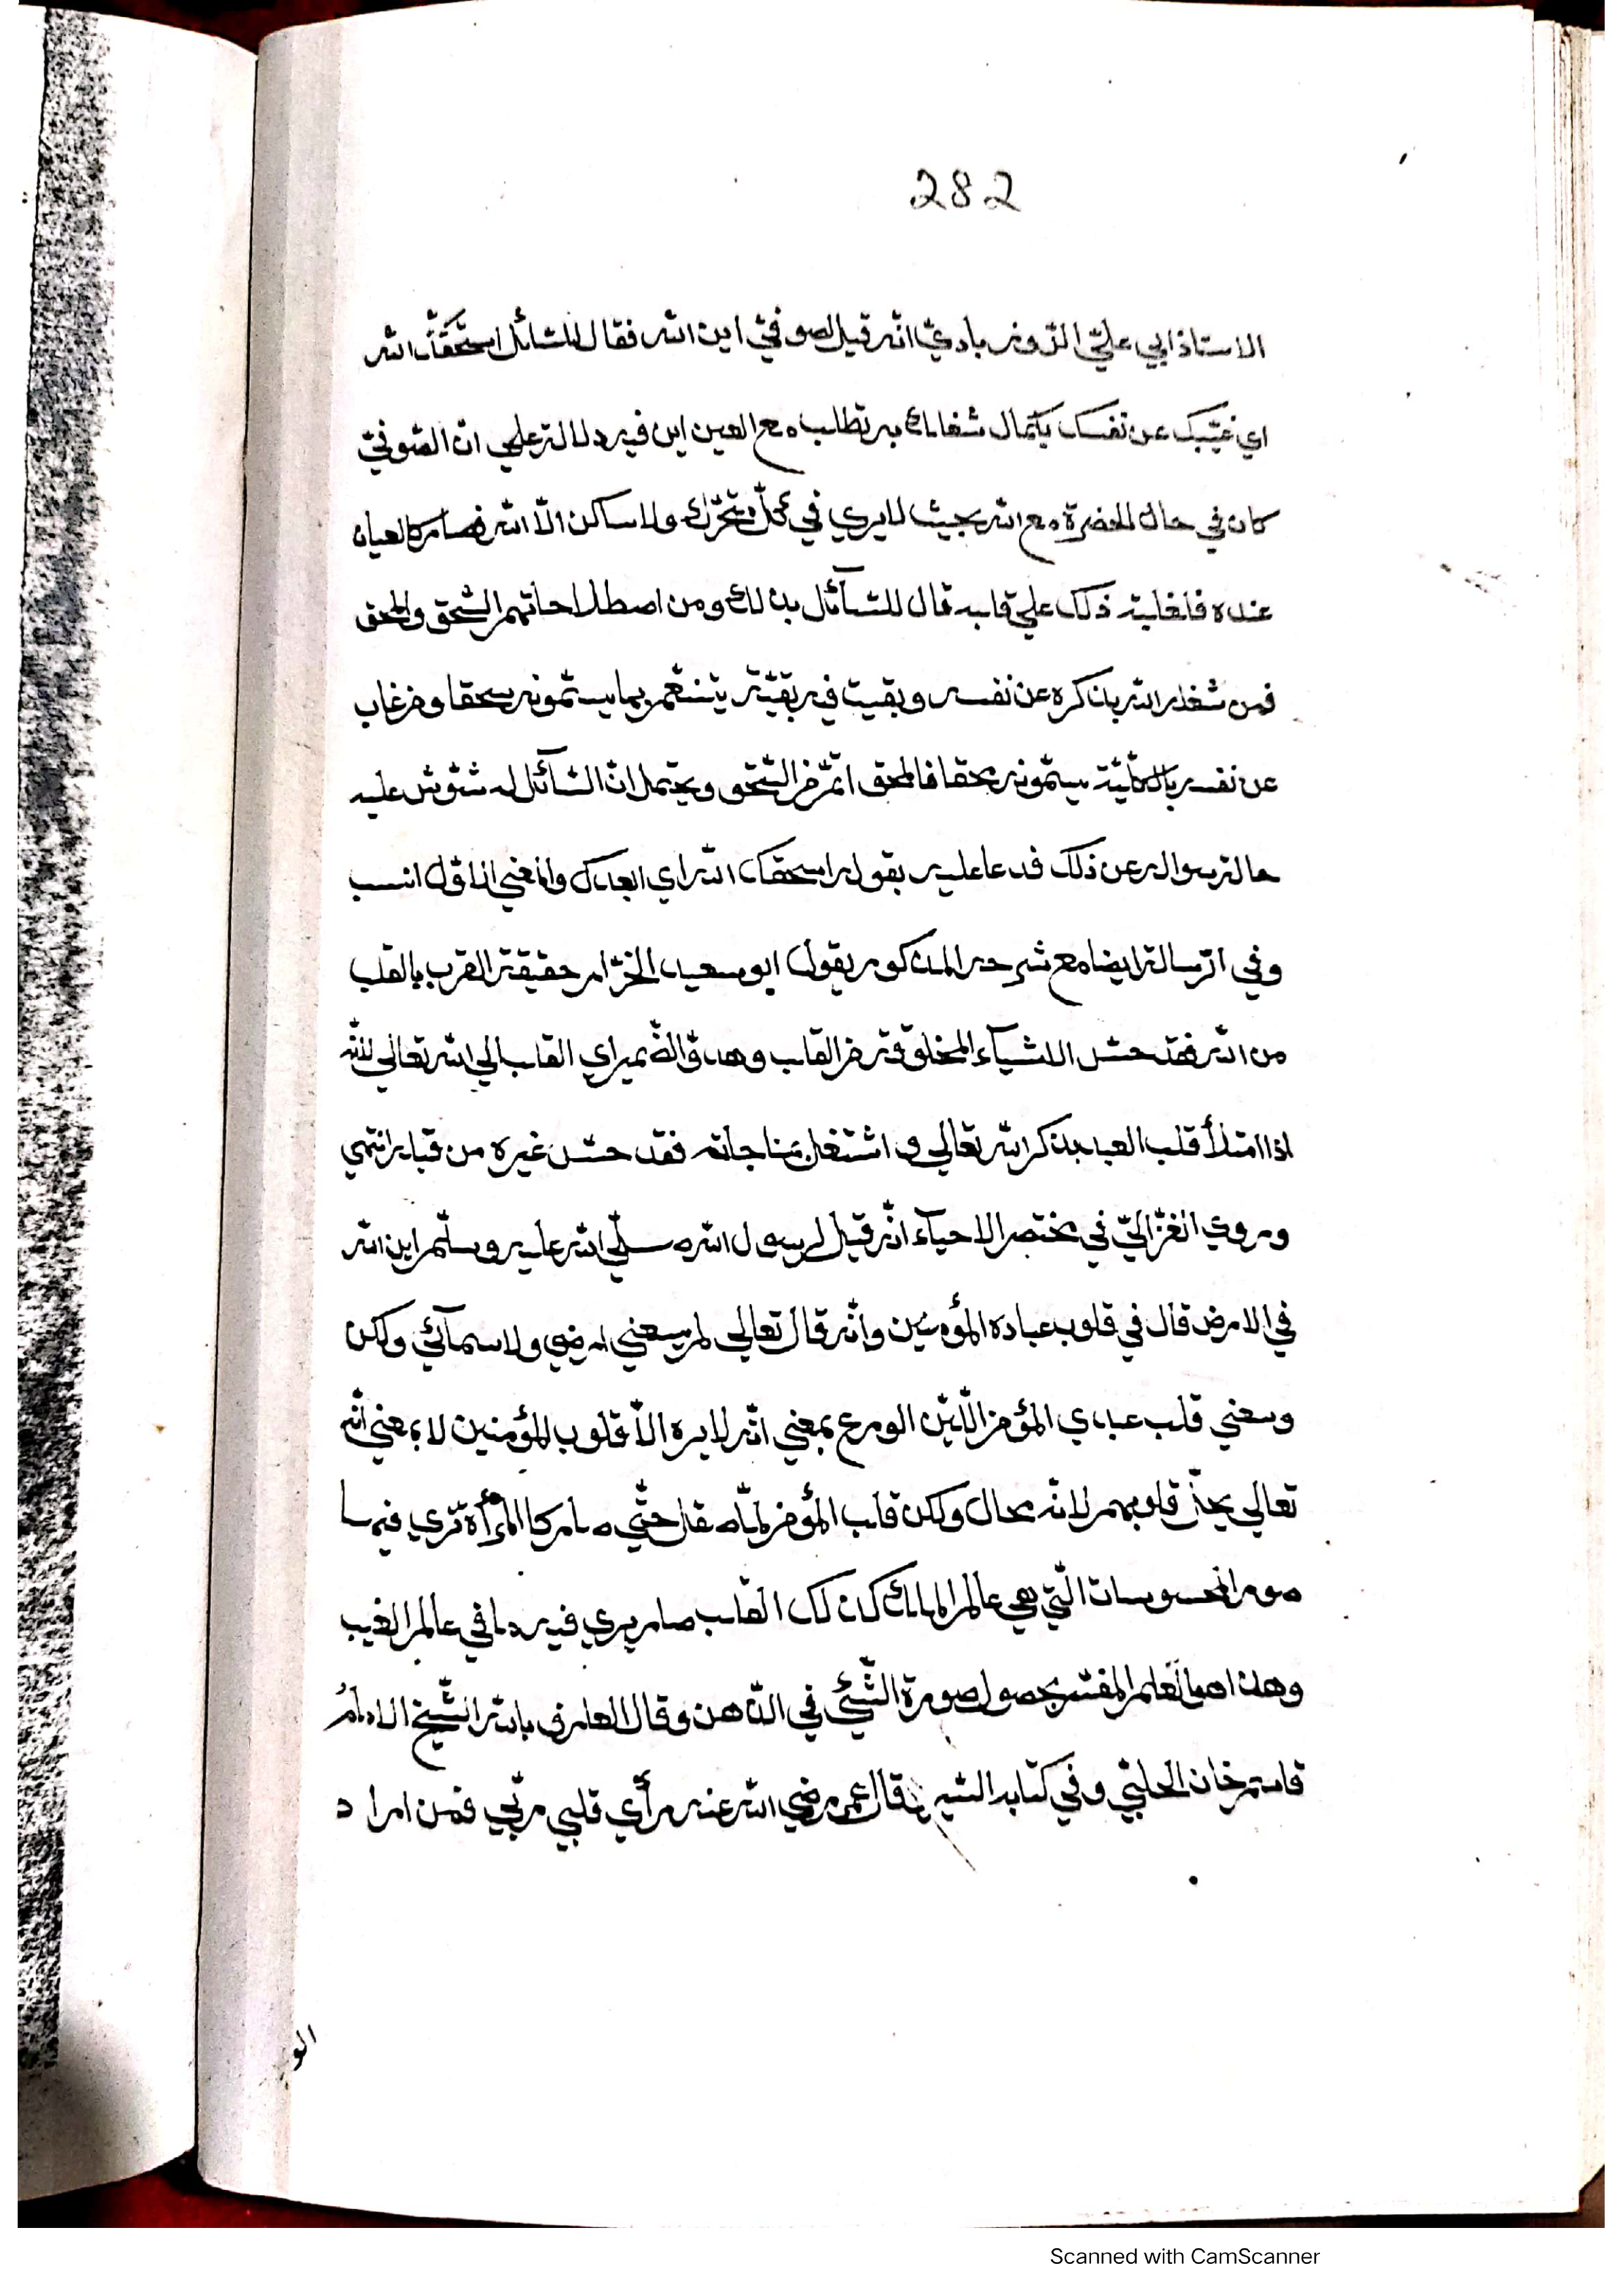 282
الاستاذ ابي علي الروذبادي انه قيل لصوفي اين الله فقال للسائل اسحقك الله
اي غيبك عن نفسك بكمال شغلك به تطلب مع العين اين فيه دلالة علي ان الصوفي
كان في حال الحضرة مع الله بحيث لا يري في كل متحرك ولا ساكن الا الله فصار كالعيان
عنده فلغلبة ذلك علي قلبه قال للسائل بذلك ومن اصطلاحاتهم السحق والمحق
فمن شغله الله بذكره عن نفسه وبقيت فيه بقية يتنعم بها يسمونه سحقا ومن غاب
عن نفسه بالكلية يسمونه محقا فالمحق اتم من السحق ويحتمل ان السائل له شوش عليه
حاله بسواله عن ذلك فدعا عليه بقوله اسحقك الله اي ابعدك والمعني الاول انسب
وفي الرسالة ايضا مع شرحه المذكور يقول ابو سعيد الخراز حقيقة القرب بالقلب
من الله فقد حس الاشياء المخلوقة من القلب وهدو الضمير اي القلب الي الله تعالي لانه
اذا امتلأ قلب العبد بذكر الله تعالي و اشتغل بمناجاته فقد حس غيره من قلبه انتهي
وروي الغزالي في مختصر الاحياء انه قيل لرسول الله صلي الله عليه وسلم اين الله
في الارض قال في قلوب عباده المؤمنين وانه قال تعالي لم يسعني ارضي ولا سمائي ولكن
وسعني قلب عبدي المؤمن اللين الورع بمعني انه لا يره الا قلوب المؤمنين لا بمعني انه
تعالي يحل قلوبهم لانه محال ولكن قلب المؤمن لما صقل حتي صار كالمرأة تري فيها
صور المحسوسات التي هي عالم الملك كان كذلك القلب صار يري فيه ما في عالم الغيب
وهذا هو العلم المفسر بحصول صورة الشيئ في الذهن وقال العارف بالله الشيخ الامام
قاسم خان الحلبي وفي كتابه السير قال عمر رضي الله عنه رأي قلبي ربي فمن اراد